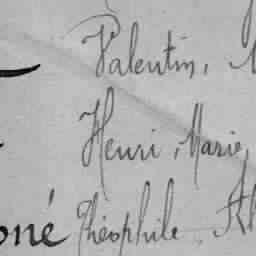 Valentin,
Henri, Marie,
oné Théophile,